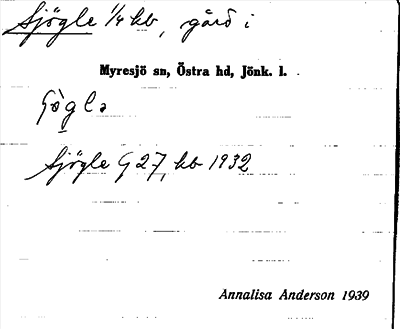 Sjögle 1/4 kb, gård i
Myresjö sn, Östra hd, Jönk. l.
Sjögle G 27, kb 1932
Annalisa Anderson 1939